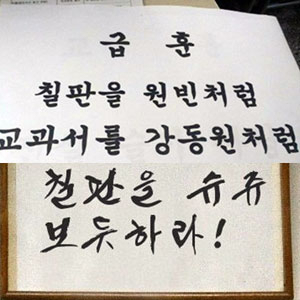 급 훈
칠판을 원빈처럼
교과서를 강동원처럼
칠판을 슈쥬
보듯하라!